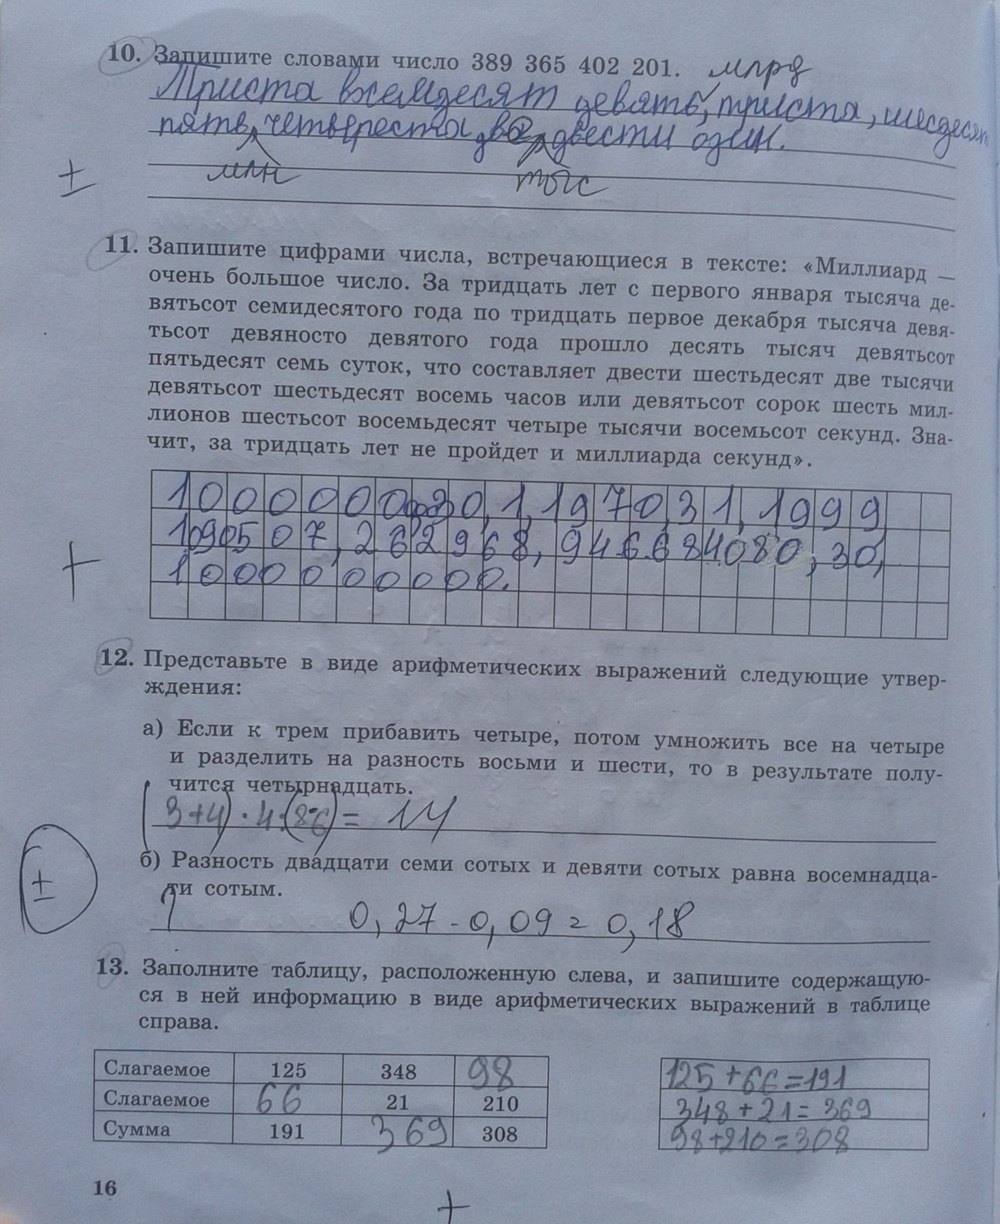 10. Запишите словами число 389 365 402 201. млрд
Триста всемдесят девять, триста, шесдесят
пять четвереста два двести один.
млн тыс
±
11. Запишите цифрами числа, встречающиеся в тексте: «Миллиард —
очень большое число. За тридцать лет с первого января тысяча де-
вятьсот семидесятого года по тридцать первое декабря тысяча девя-
тьсот девяносто девятого года прошло десять тысяч девятьсот
пятьдесят семь суток, что составляет двести шестьдесят две тысячи
девятьсот шестьдесят восемь часов или девятьсот сорок шесть мил-
лионов шестьсот восемьдесят четыре тысячи восемьсот секунд. Зна-
чит, за тридцать лет не пройдет и миллиарда секунд».
30, 1, 1970, 31, 1999,
262968, 30,
+
1000000000.
12. Представьте в виде арифметических выражений следующие утвер-
ждения:
а) Если к трем прибавить четыре, потом умножить все на четыре
и разделить на разность восьми и шести, то в результате полу-
чится четырнадцать.
(3+4) · 4:(8-6) = 14
б) Разность двадцати семи сотых и девяти сотых равна восемнадца-
ти сотым.
±
0,27 - 0,09 = 0,18
13. Заполните таблицу, расположенную слева, и запишите содержащую-
ся в ней информацию в виде арифметических выражений в таблице
справа.
Слагаемое 125 348 98 125+66=191
Слагаемое 66 21 210 348+21=369
Сумма 191 369 308 98+210=308
16
+